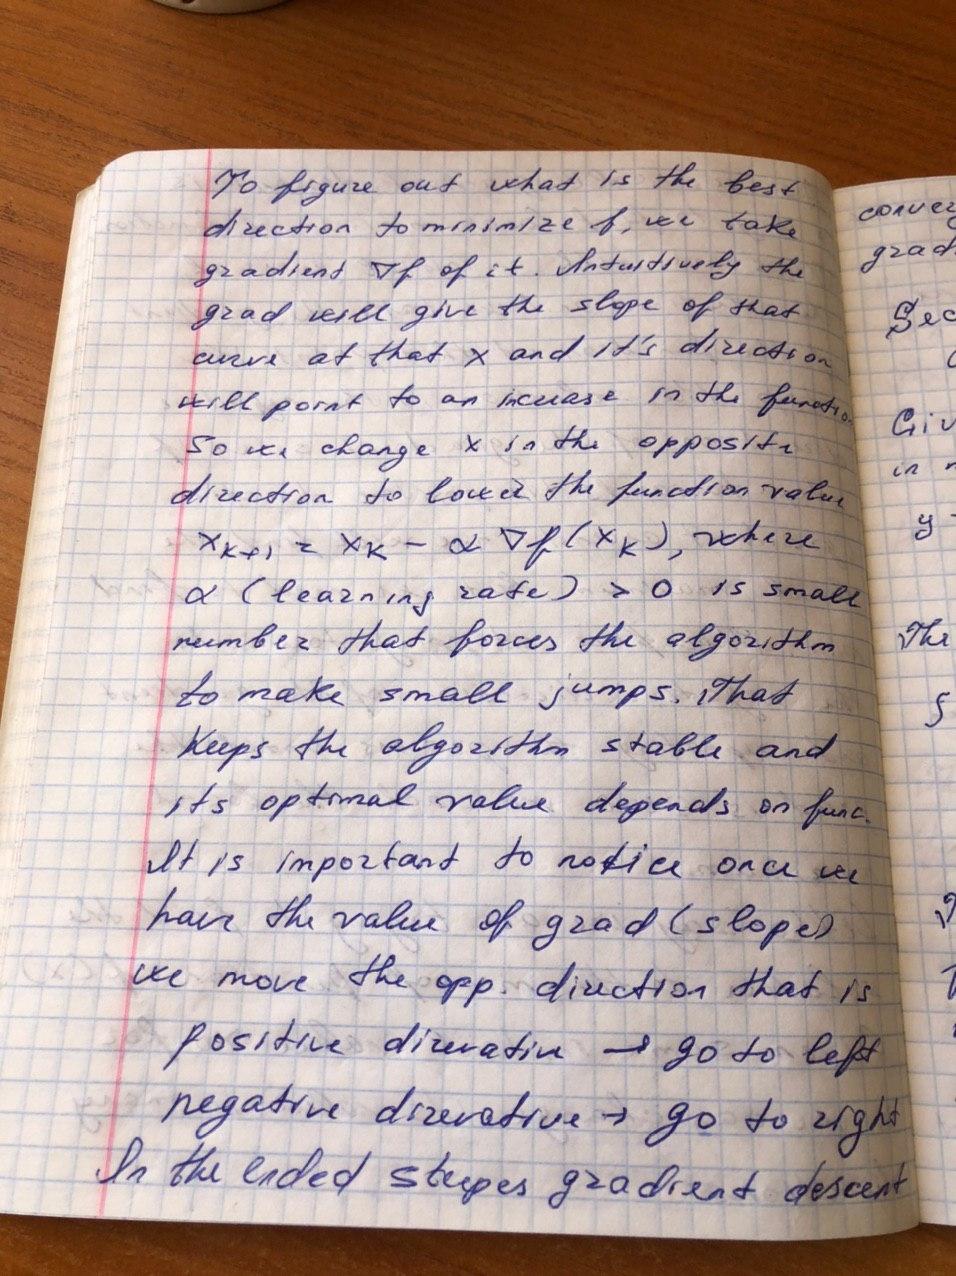 To figure out what is the best
direction to minimize f, we take
gradient ∇f of it. Intuitively the
grad will give the slope of that
curve at that x and it's direction
will point to an increase in the function
So we change x in the opposite
direction to lower the function value
x_{k+1} = x_k - α ∇f(x_k), where
α (learning rate) > 0 is small
number that forces the algorithm
to make small jumps. That
keeps the algorithm stable and
its optimal value depends on func.
It is important to notice once we
have the value of grad (slope)
we move the opp. direction that is
positive direvative → go to left
negative direvative → go to right
In the ended steeps gradient descent
conver
grad
Sec
Giv
in
y
The